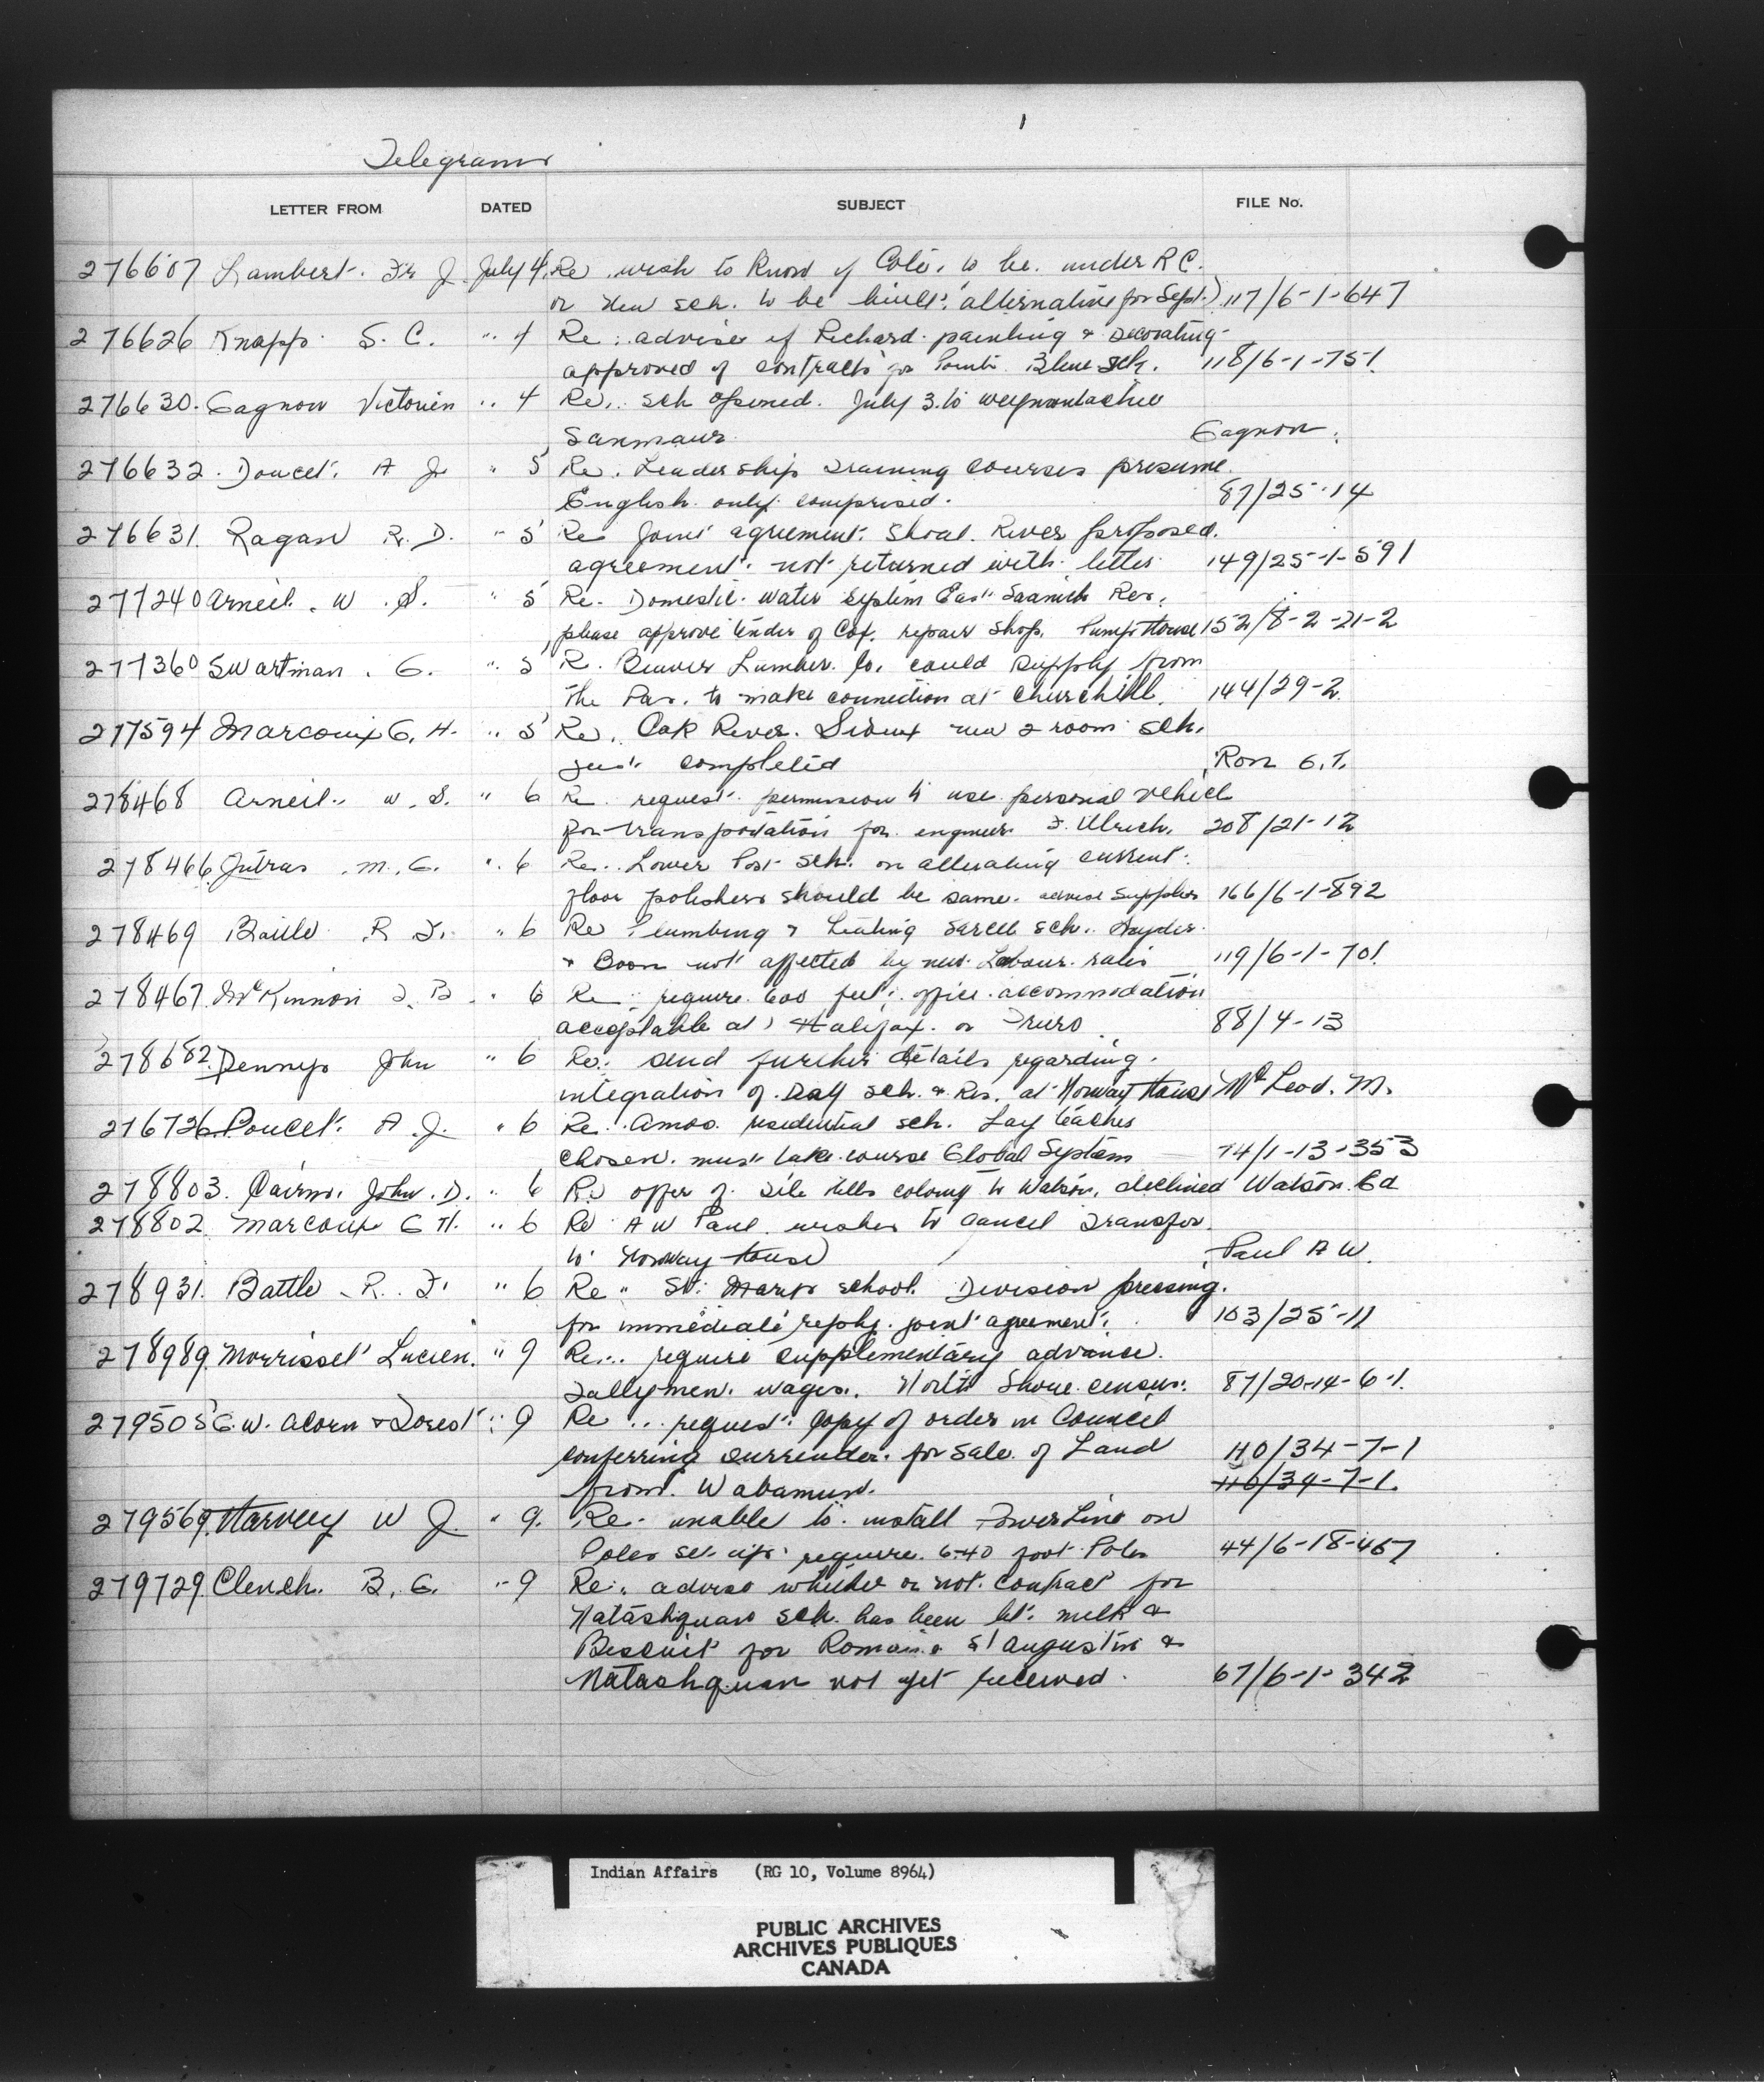 1
Telegrams
LETTER FROM DATED SUBJECT FILE No.
276607 Lambert. Fr J. July 4. Re. wish to know if Cote. to be. under R C.
or new sch. to be built. alternative for Sept.) 117/6-1-647
276626 Knapp. S. C. " 4 Re: advise if Richard painting & Decorating
approved of contracts for Pointe Blue sch. 118/6-1-751.
276630. Gagnon Victorien " 4 Re. sch opened. July 3. to weymontachie
Sanmaur. Gagnon.
276632. Doucet. A J. " 5 Re. Leadership Training courses presume.
English only comprised. 87/25-14
276631. Ragan R. D. " 5 Re Joint agreement. Shoal River proposed.
agreement. not returned with. letter 149/25-1-591
277240 Arneil. W. S. " 5 Re. Domestic. water system East Saanich Res.
please approve tender of repair shop. Pump House 152/8-2-21-2
277360 Swartman. G. " 5 R. Beaver Lumber. Co. could supply from
the Pas. to make connection at Churchill. 144/29-2.
277594 Marcoux G. H. " 5 Re. Oak River. Sioux new 2 room sch.
just completed Ron G. T.
278468 Arneil. W. S. " 6 Re. request. permission to use personal vehicle
for transportation for. engineer F. Ulrich. 208/21-12
278466 Jutras. M. G. " 6 Re. Lower Post sch. on alternating current.
floor polishers should be same. advise supplier 166/6-1-892
278469 Battle R. F. " 6 Re Plumbing & Heating Sarcee sch. Hayder
& Boon not affected by new Labour. rates 119/6-1-701.
278467. McKinnon F. B. " 6 Re require 600 feet. office accommodation
acceptable at Halifax. or Truro 88/4-13
278682. Dennys John " 6 Re. send further details regarding.
integration of. Day sch. & Res. at Norway House McLeod. M.
276726 Doucet. A. J. " 6 Re. Amos. residential sch. Lay teacher
chosen. must take course Global System 74/1-13-353
278803. Cairns. John. D. " 6 Re offer of File Hills colony to Watson. declined Watson. Ed
278802 Marcoux G H. " 6 Re A W Paul. wishes to cancel Transfer.
to Norway House Paul A W.
278931. Battle R. F. " 6 Re " St. Marys school. Division pressing.
for immediate reply. joint agreement. 103/25-11
278989. Morrisset Lucien. " 9 Re. require supplementary advance.
Tallymen. wages. North Shore census. 87/20-14-6-1.
279505 G. W. Acorn & Forest " 9 Re... request. copy of order in Council
conferring surrender. for sale. of Land 110/34-7-1
from. Wabamun. 110/34-7-1.
279569. Harvey W J. " 9. Re. unable to. install Power Line on
Poles set up. require. 6-40 foot Poles 44/6-18-467
279729. Clench. B. G. " 9 Re. advise whether or not. contract for
Natashquan sch. has been let. milk &
Biscuit for Romaine St Augustin &
Natashquan not yet received. 67/6-1-342
Indian Affairs (RG 10, Volume 8964)
PUBLIC ARCHIVES
ARCHIVES PUBLIQUES
CANADA